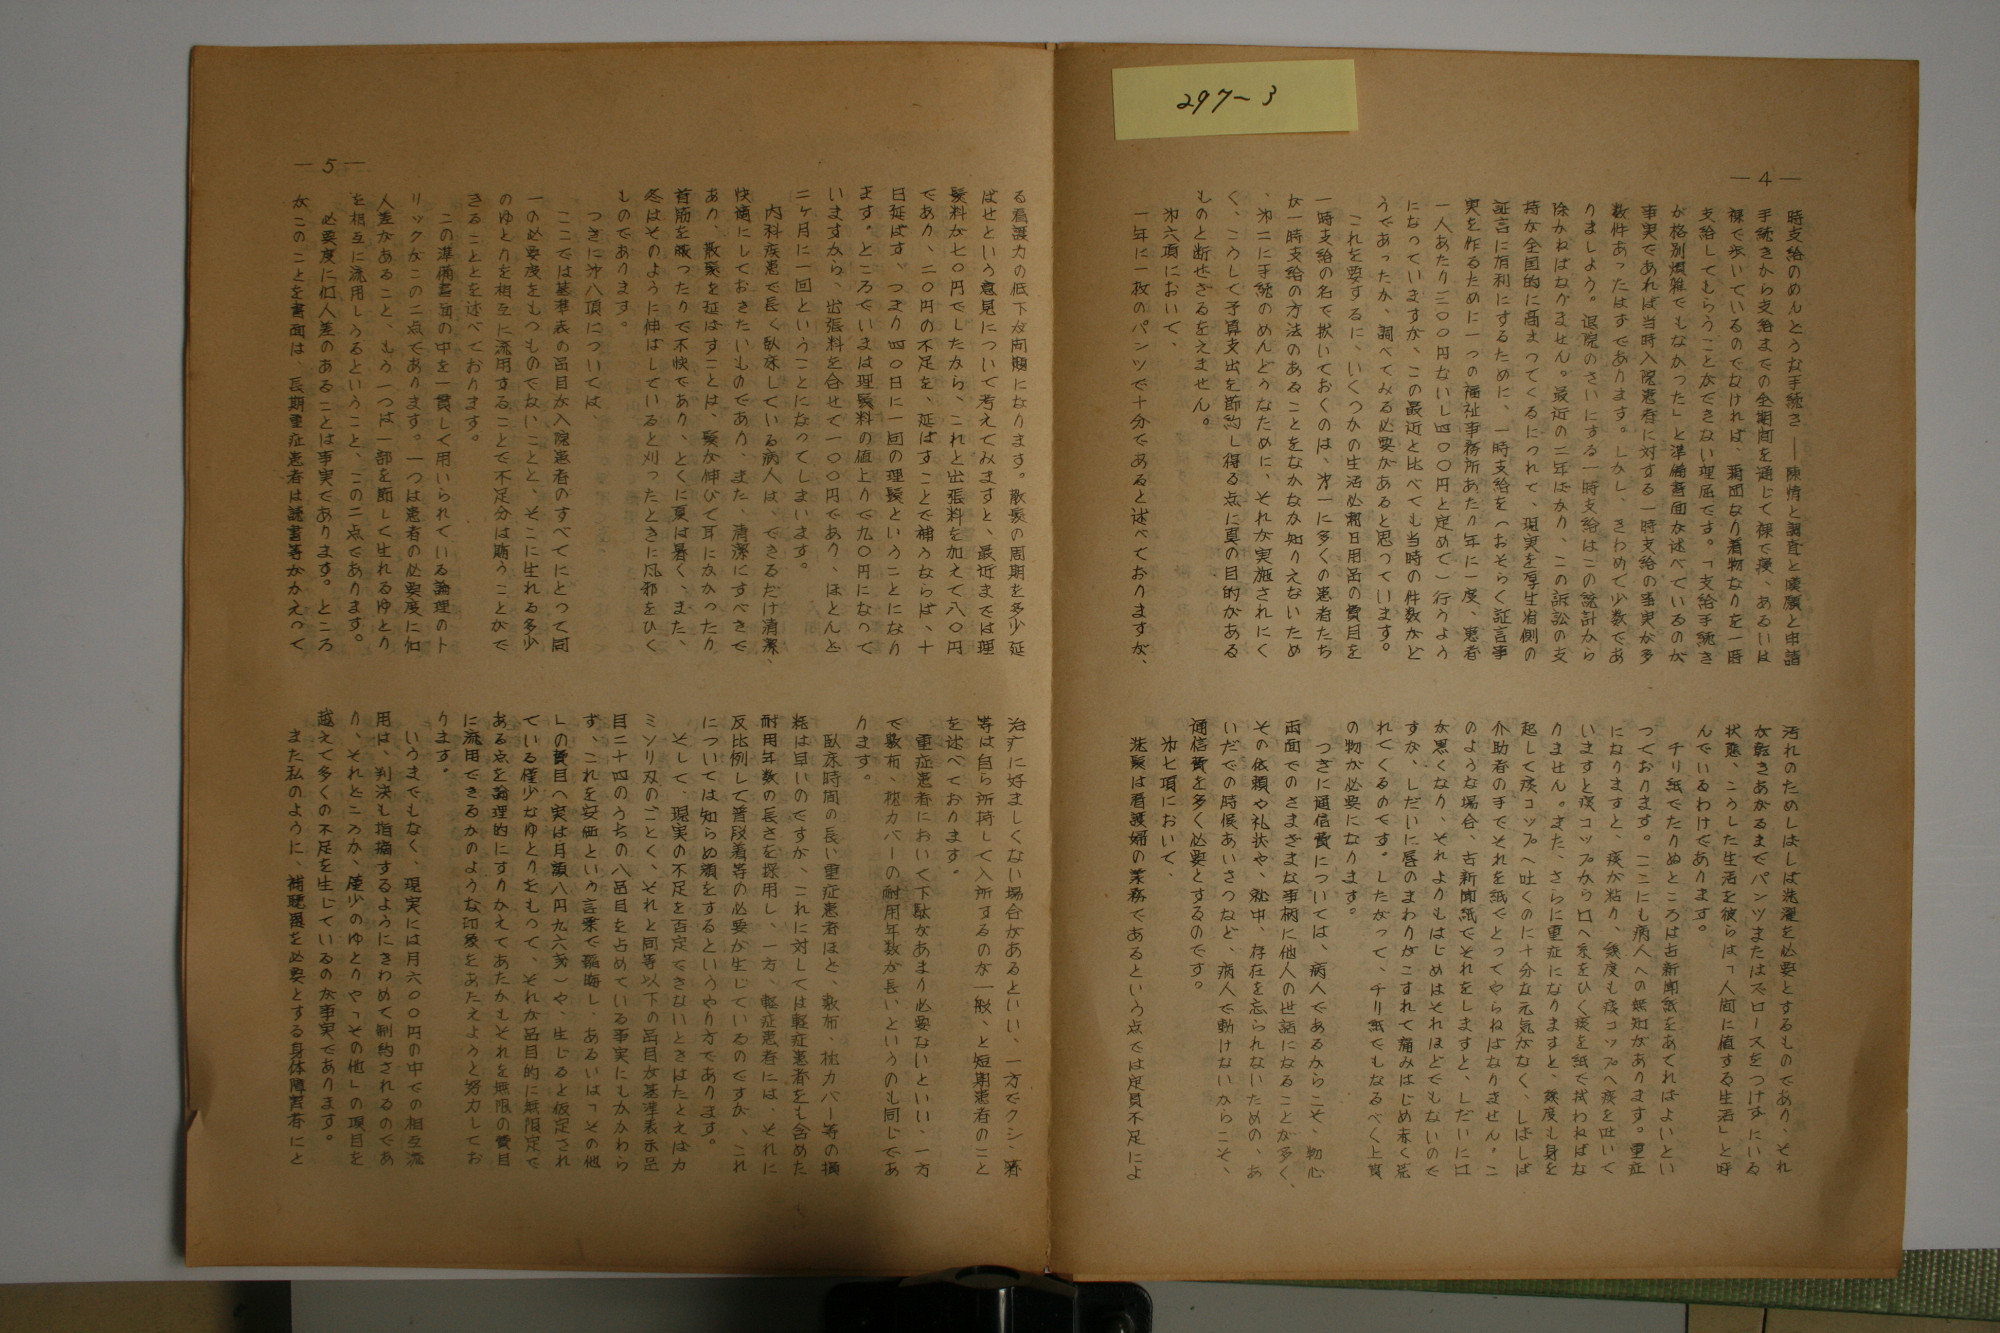 297-3
—4—
時支給のめんどうな手続き——陳情と調査と嘆願と申請
手続きから支給までの全期間を通じて裸で寝、あるいは
裸で歩いているのでなければ、蒲団なり着物なりを一時
支給してもらうことができない理屈です。「支給手続き
が格別煩雑でもなかった」と準備書面が述べているのが
事実であれば当時入院患者に対する一時支給の事実が多
数件あったはずであります。しかし、きわめて少数であ
りましよう。退院のさいにする一時支給はこの統計から
除かねばなりません。最近の二年ばかり、この訴訟の支
持が全国的に高まつてくるにつれて、現実を厚生省側の
証言に有利にするために、一時支給を(おそらく証言事
実を作るために一つの福祉事務所あたり年に一度、患者
一人あたり三〇〇円ないし四〇〇円と定めて)行うよう
になっていますが、この最近と比べても当時の件数がど
うであったか、調べてみる必要があると思つています。
これを要するに、いくつかの生活必需日用品の費目を
一時支給の名で拭いておくのは、才一に多くの患者たち
が一時支給の方法のあることをなかなか知りえないため
、才二に手続のめんどうなために、それが実施されにく
く、こうして予算支出を節約し得る点に真の目的がある
ものと断ぜざるをえません。
才六項において、
一年に一枚のパンツで十分であると述べておりますが、
汚れのためしばしば洗濯を必要とするものであり、それ
が乾きあがるまでパンツまたはズロースをつけずにいる
状態、こうした生活を彼らは「人間に値する生活」と呼
んでいるわけであります。
チリ紙でたりぬところは古新聞紙をあてればよいとい
つております。ここにも病人への無知があります。重症
になりますと、痰が粘り、幾度も痰コップへ痰を吐いて
いますと痰コップから口へ糸をひく痰を紙で拭わねばな
りません。また、さらに重症になりますと、幾度も身を
起して痰コップへ吐くのに十分な元気がなく、しばしば
介助者の手でそれを紙でとってやらねばなりません。こ
のような場合、古新聞紙でそれをしますと、しだいに口
が悪くなり、それよりもはじめはそれほどでもないので
すが、しだいに唇のまわりがこすれて痛みはじめ赤く荒
れてくるのです。したがって、チリ紙でもなるべく上質
の物が必要になります。
つぎに通信費については、病人であるからこそ、物心
両面でのさまざまな事柄に他人の世話になることが多く、
その依頼や礼状や、就中、存在を忘られないための、あ
いだでの時候あいさつなど、病人で動けないからこそ、
通信費を多く必要とするのです。
才七項において、
洗髪は看護婦の業務であるという点では定員不足によ
—5—
る看護力の低下が問題になります。散髪の周期を多少延
ばせという意見について考えてみますと、最近までは理
髪料が七〇円でしたから、これと出張料を加えて八〇円
であり、二〇円の不足を、延ばすことで補うならば、十
日延ばす、つまり四〇日に一回の理髪ということになり
ます。ところでいまは理髪料の値上りで九〇円になって
いますから、出張料を合せて一〇〇円であり、ほとんど
二ヶ月に一回ということになってしまいます。
内科疾患で長く臥床している病人は、できるだけ清潔、
快適にしておきたいものであり、また、清潔にすべきで
あり、散髪を延ばすことは、髪が伸びて耳にかかったり
首筋を暖ったりで不快であり、とくに夏は暑く、また、
冬はそのように伸ばしていると刈ったときに風邪をひく
ものであります。
つぎに才八項については、
ここでは基準表の品目が入院患者のすべてにとって同
一の必要度をもつものでないことと、そこに生れる多少
のゆとりを相互に流用することで不足分は賄うことがで
きることとを述べております。
この準備書面の中を一貫して用いられている論理のト
リックがこの二点であります。一つは患者の必要度に個
人差があること、もう一つは一部を節して生れるゆとり
を相互に流用しうるということ、この二点であります。
必要度に個人差のあることは事実であります。ところ
がこのことを書面は、長期重症患者は読書等がかえって
治疗に好ましくない場合があるといい、一方でクシ、箸
等は自ら所持して入所するのが一般、と短期患者のこと
を述べております。
重症患者において下駄があまり必要ないといい、一方
で敷布、枕カバーの耐用年数が長いというのも同じであ
ります。
臥床時間の長い重症患者ほど、敷布、枕カバー等の損
耗は早いのですが、これに対しては軽症患者をも含めた
耐用年数の長さを採用し、一方、軽症患者には、それに
反比例して普段着等の必要が生じているのですが、これ
については知らぬ顔をするというやり方であります。
そして、現実の不足を否定できないときはたとえばカ
ミソリ刃のごとく、それと同等以下の品目が基準表示品
目二十四のうちの八品目を占めている事実にもかかわら
ず、これを安価という言葉で韜晦し、あるいは「その他
」の費目へ実は月額八円九六銭)や、生じると仮定され
ている僅少なゆとりをもって、それが品目的に無限定で
ある点を論理的にすりかえてあたかもそれを無限の費目
に流用できるかのような印象をあたえようと努力してお
ります。
いうまでもなく、現実には月六〇〇円の中での相互流
用は、判決も指摘するようにきわめて制約されるのであ
り、それどころか、僅少のゆとりや「その他」の項目を
越えて多くの不足を生じているのが事実であります。
また私のように、補聴器を必要とする身体障害者にと